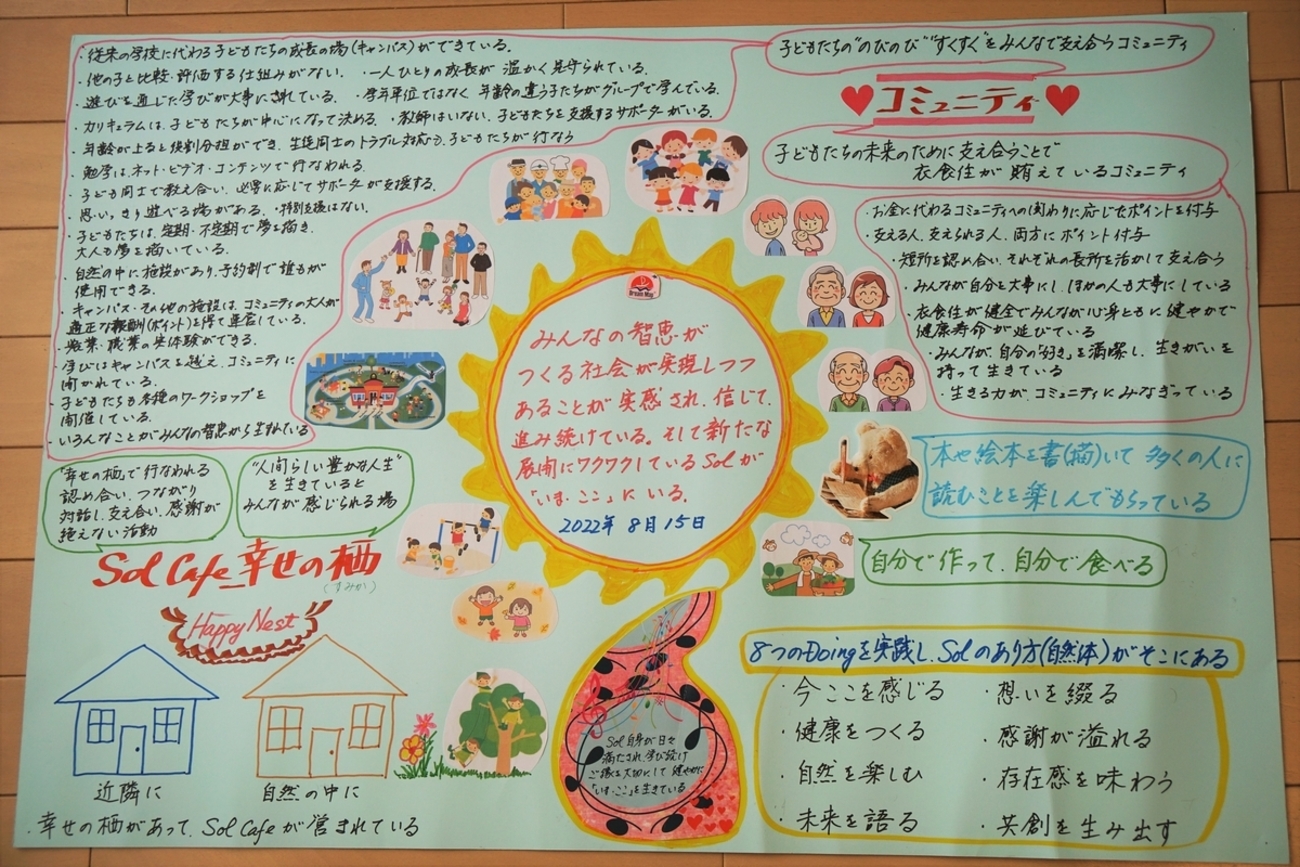 ・従来の学校に代わる子どもたちの成長の場(キャンパス)ができている。
・他の子と比較・評価する仕組みがない。 ・一人ひとりの成長が 温かく見守られている。
・遊びを通じた学びが大事にされている。 ・学年単位ではなく 年齢の違う子たちがグループで学んでいる。
・カリキュラムは、子どもたちが中心になって決める。 ・教師はいない、子どもたちを支援するサポーターがいる。
・年齢が上ると役割分担ができ、生徒同士のトラブル対応も、子どもたちが行なう
・勉学は、ネット・ビデオ・コンテンツで行なわれる。
・子ども同士で教え合い、必要に応じてサポーターが支援する。
・思いっきり遊べる場がある。 ・特別支援はない。
・子どもたちは、定期・不定期で夢を描き、
大人も夢を描いている。
・自然の中に施設があり、予約制で誰もが
使用できる。
・キャンパス・その他の施設は、コミュニティの大人が
適正な報酬(ポイント)を得て運営している。
・農業、職業の実体験ができる。
・学びはキャンパスを越え、コミュニティに
開かれている。
・子どもたちも各種のワークショップを
開催している。
・いろんなことがみんなの智恵から生まれている
子どもたちの"のびのび""すくすく"をみんなで支え合うコミュニティ
コミュニティ
子どもたちの未来のために支え合うことで
衣食住が賄えているコミュニティ
・お金に代わるコミュニティへの関わりに応じたポイントを付与
・支える人、支えられる人、両方にポイント付与
・短所を認め合い、それぞれの長所を活かして支え合う
・みんなが自分を大事にし、ほかの人も大事にしている
・衣食住が健全でみんなが心身ともに健やかで
健康寿命が延びている
・みんなが、自分の「好き」を満喫し、生きがいを
持って生きている
・生きる力がコミュニティにみなぎっている
Dream Map
みんなの智恵が
つくる社会が実現しつつ
あることが実感され、信じて、
進み続けている。そして新たな
展開にワクワクしているSolが
「いま・ここ」にいる。
2022年 8月15日
本や絵本を書(描)いて多くの人に
読むことを楽しんでもらっている
自分で作って、自分で食べる
"幸せの栖"で行なわれる
認め合い、つながり
対話し、支え合い、感謝が
絶えない活動
"人間らしい豊かな人生"
を生きていると
みんなが感じられる場
Sol Cafe 幸せの栖
(すみか)
Happy Nest
近隣に
自然の中に
・幸せの栖があって、Sol Cafeが営まれている
Sol自身が日々
満たされ、学び続け
ご縁を大切にして健やかに
「いま・ここ」を生きている
8つのDoingを実践し、Solのあり方(自然体)がそこにある
・今ここを感じる ・想いを綴る
・健康をつくる ・感謝が溢れる
・自然を楽しむ ・存在感を味わう
・未来を語る ・共創を生み出す